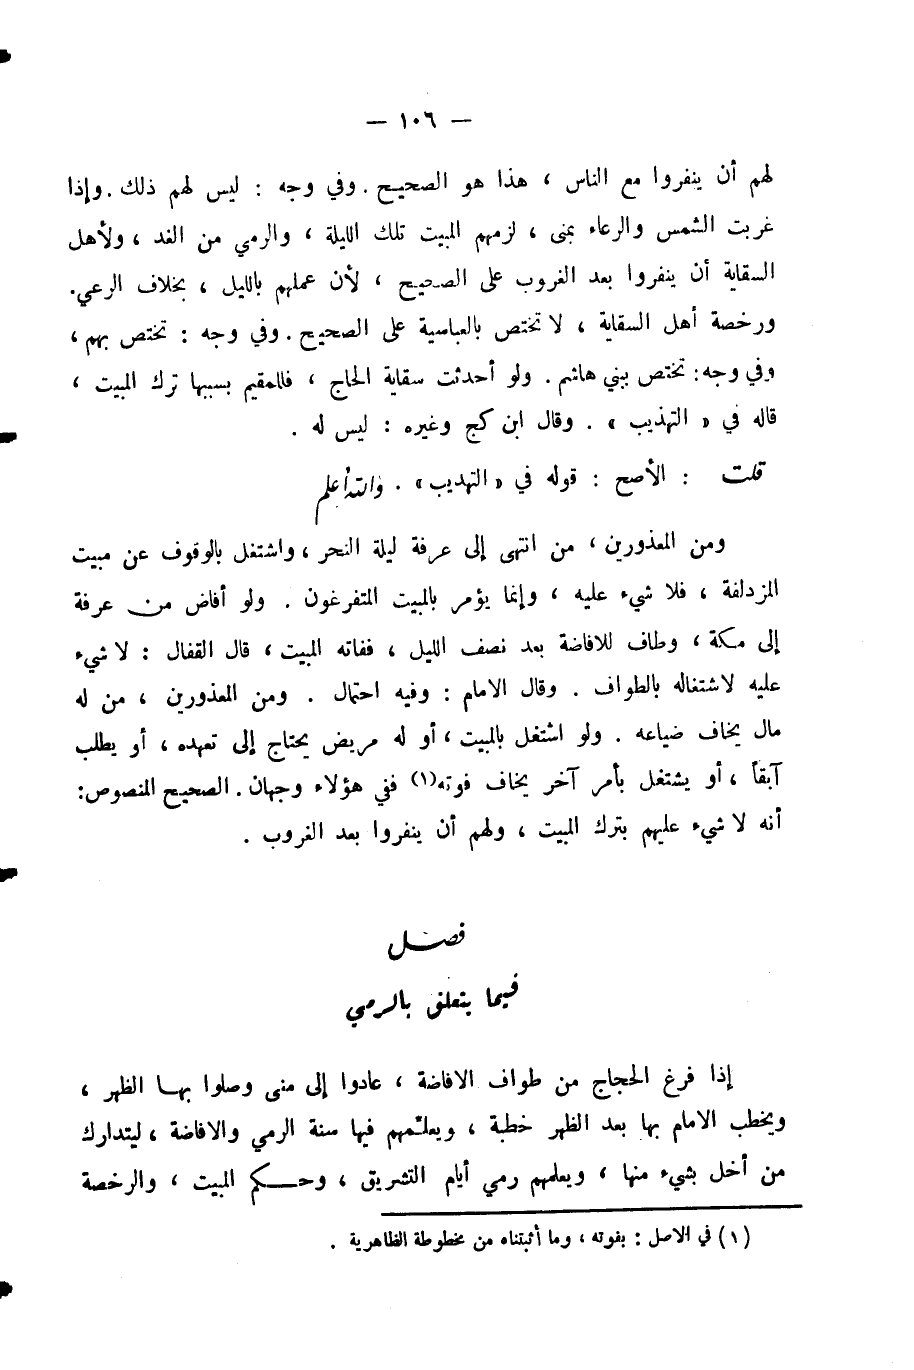 — ١٠٦ —
لهم أن ينفروا مع الناس ، هذا هو الصحيح . وفي وجه : ليس لهم ذلك . وإذا
غربت الشمس والرعاء بمنى ، لزمهم المبيت تلك الليلة ، والرمي من الغد ، ولأهل
السقاية أن ينفروا بعد الغروب على الصحيح ، لأن عملهم بالليل ، بخلاف الرعي.
ورخصة أهل السقاية ، لا تختص بالعباسية على الصحيح . وفي وجه : تختص بهم ،
وفي وجه: تختص ببني هاشم . ولو أحدثت سقاية الحاج ، فللمقيم بسببها ترك المبيت ،
قاله في « التهذيب » . وقال ابن كج وغيره : ليس له .
قلت : الأصح : قوله في « التهذيب» . والله أعلم
ومن المعذورين ، من انتهى إلى عرفة ليلة النحر ، واشتغل بالوقوف عن مبيت
المزدلفة ، فلا شيء عليه ، وإنما يؤمر بالمبيت المتفرغون . ولو أفاض من عرفة
إلى مكة ، وطاف للافاضة بعد نصف الليل ، ففاته المبيت ، قال القفال : لا شيء
عليه لاشتغاله بالطواف . وقال الامام : وفيه احتمال . ومن المعذورين ، من له
مال يخاف ضياعه . ولو اشتغل بالمبيت ، أو له مريض يحتاج إلى تعهده ، أو يطلب
آبقاً ، أو يشتغل بأمر آخر يخاف فوته(١) ففي هؤلاء وجهان . الصحيح المنصوص:
أنه لا شيء عليهم بترك المبيت ، ولهم أن ينفروا بعد الغروب .
فصل
فيما يتعلق بالرمي
إذا فرغ الحجاج من طواف الافاضة ، عادوا إلى منى وصلوا بها الظهر ،
ويخطب الامام بها بعد الظهر خطبة ، ويعلّمهم فيها سنة الرمي والافاضة ، ليتدارك
من أخل بشيء منها ، ويعلمهم رمي أيام التشريق ، وحكم المبيت ، والرخصة
(١) في الاصل : بفوته ، وما أثبتناه من مخطوطة الظاهرية .